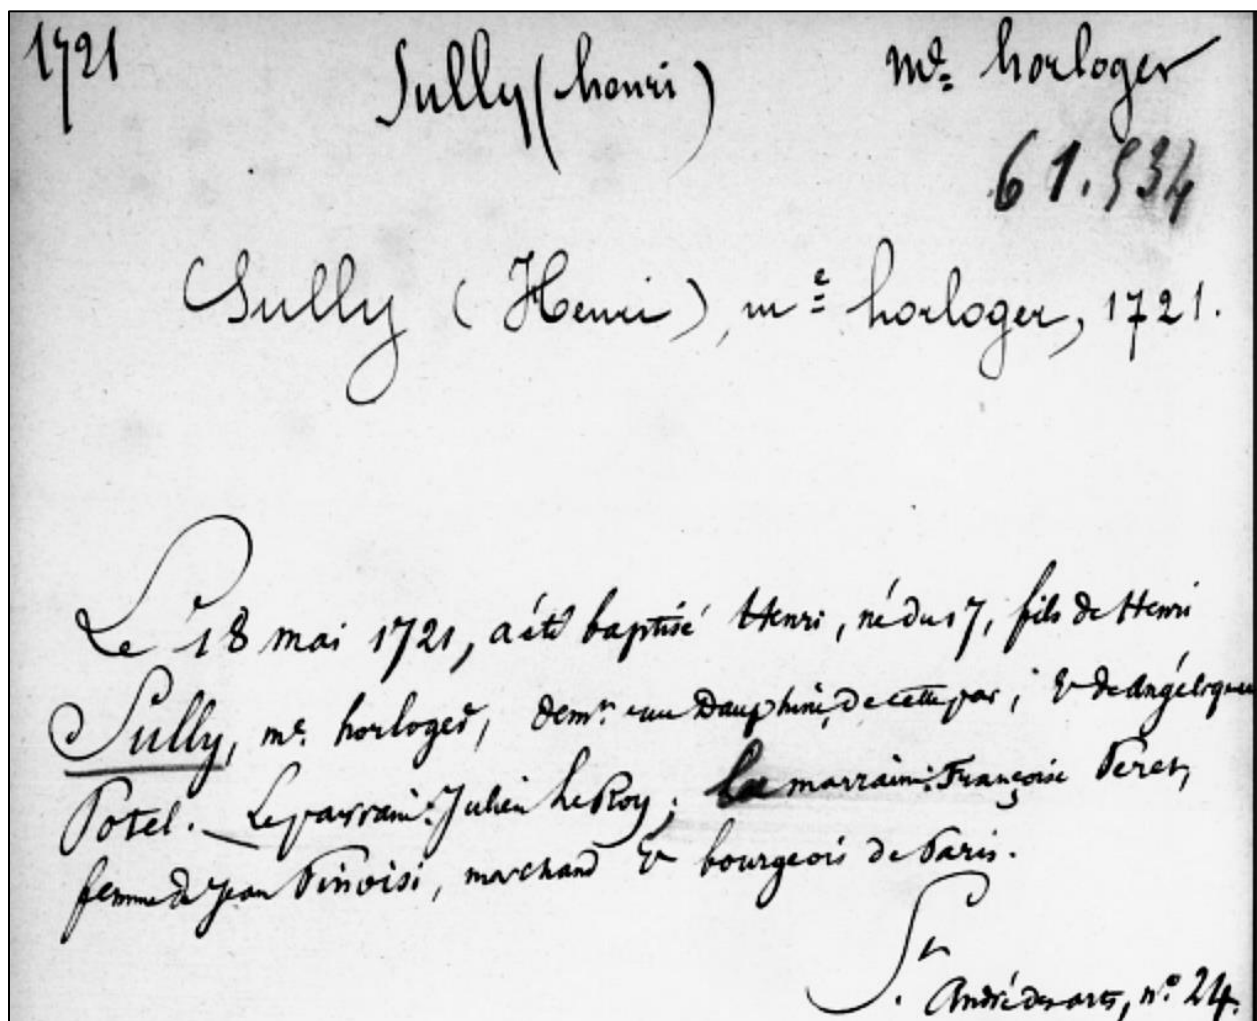 1721 Sully (henri) md. horloger
61.534
Sully (Henri), me horloger, 1721.
Le 18 mai 1721, a été baptisé Henri, né du 17, fils de Henri
Sully, me. horloger, demt. rue Dauphine, de cette par; & de Angélique
Potel. _ Le parrain: Julien Le Roy; la marraine: Françoise Peret,
femme de Jean Pinoisi, marchand & bourgeois de Paris.
St.
André des arts, no. 24.